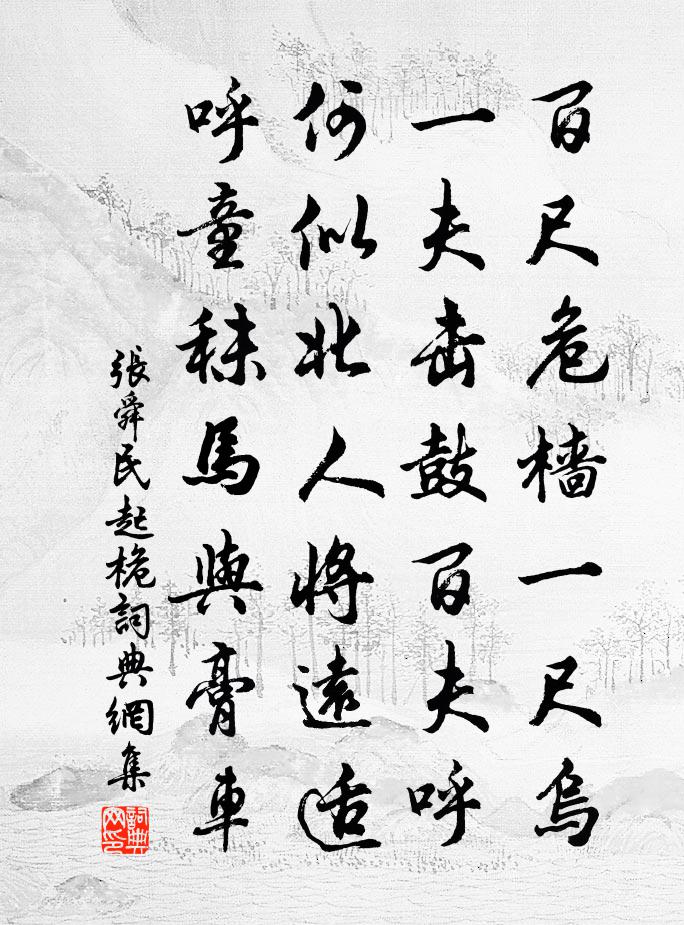 百尺危檣一尺烏
一夫击鼓百夫呼
何似北人將遠适
呼童秣馬與膏車
張舜民起桅詞典網集
詞典网印